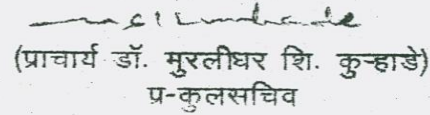 (प्राचार्य डॉ. मुरलीधर शि. कुऱ्हाडे)
प्र-कुलसचिव